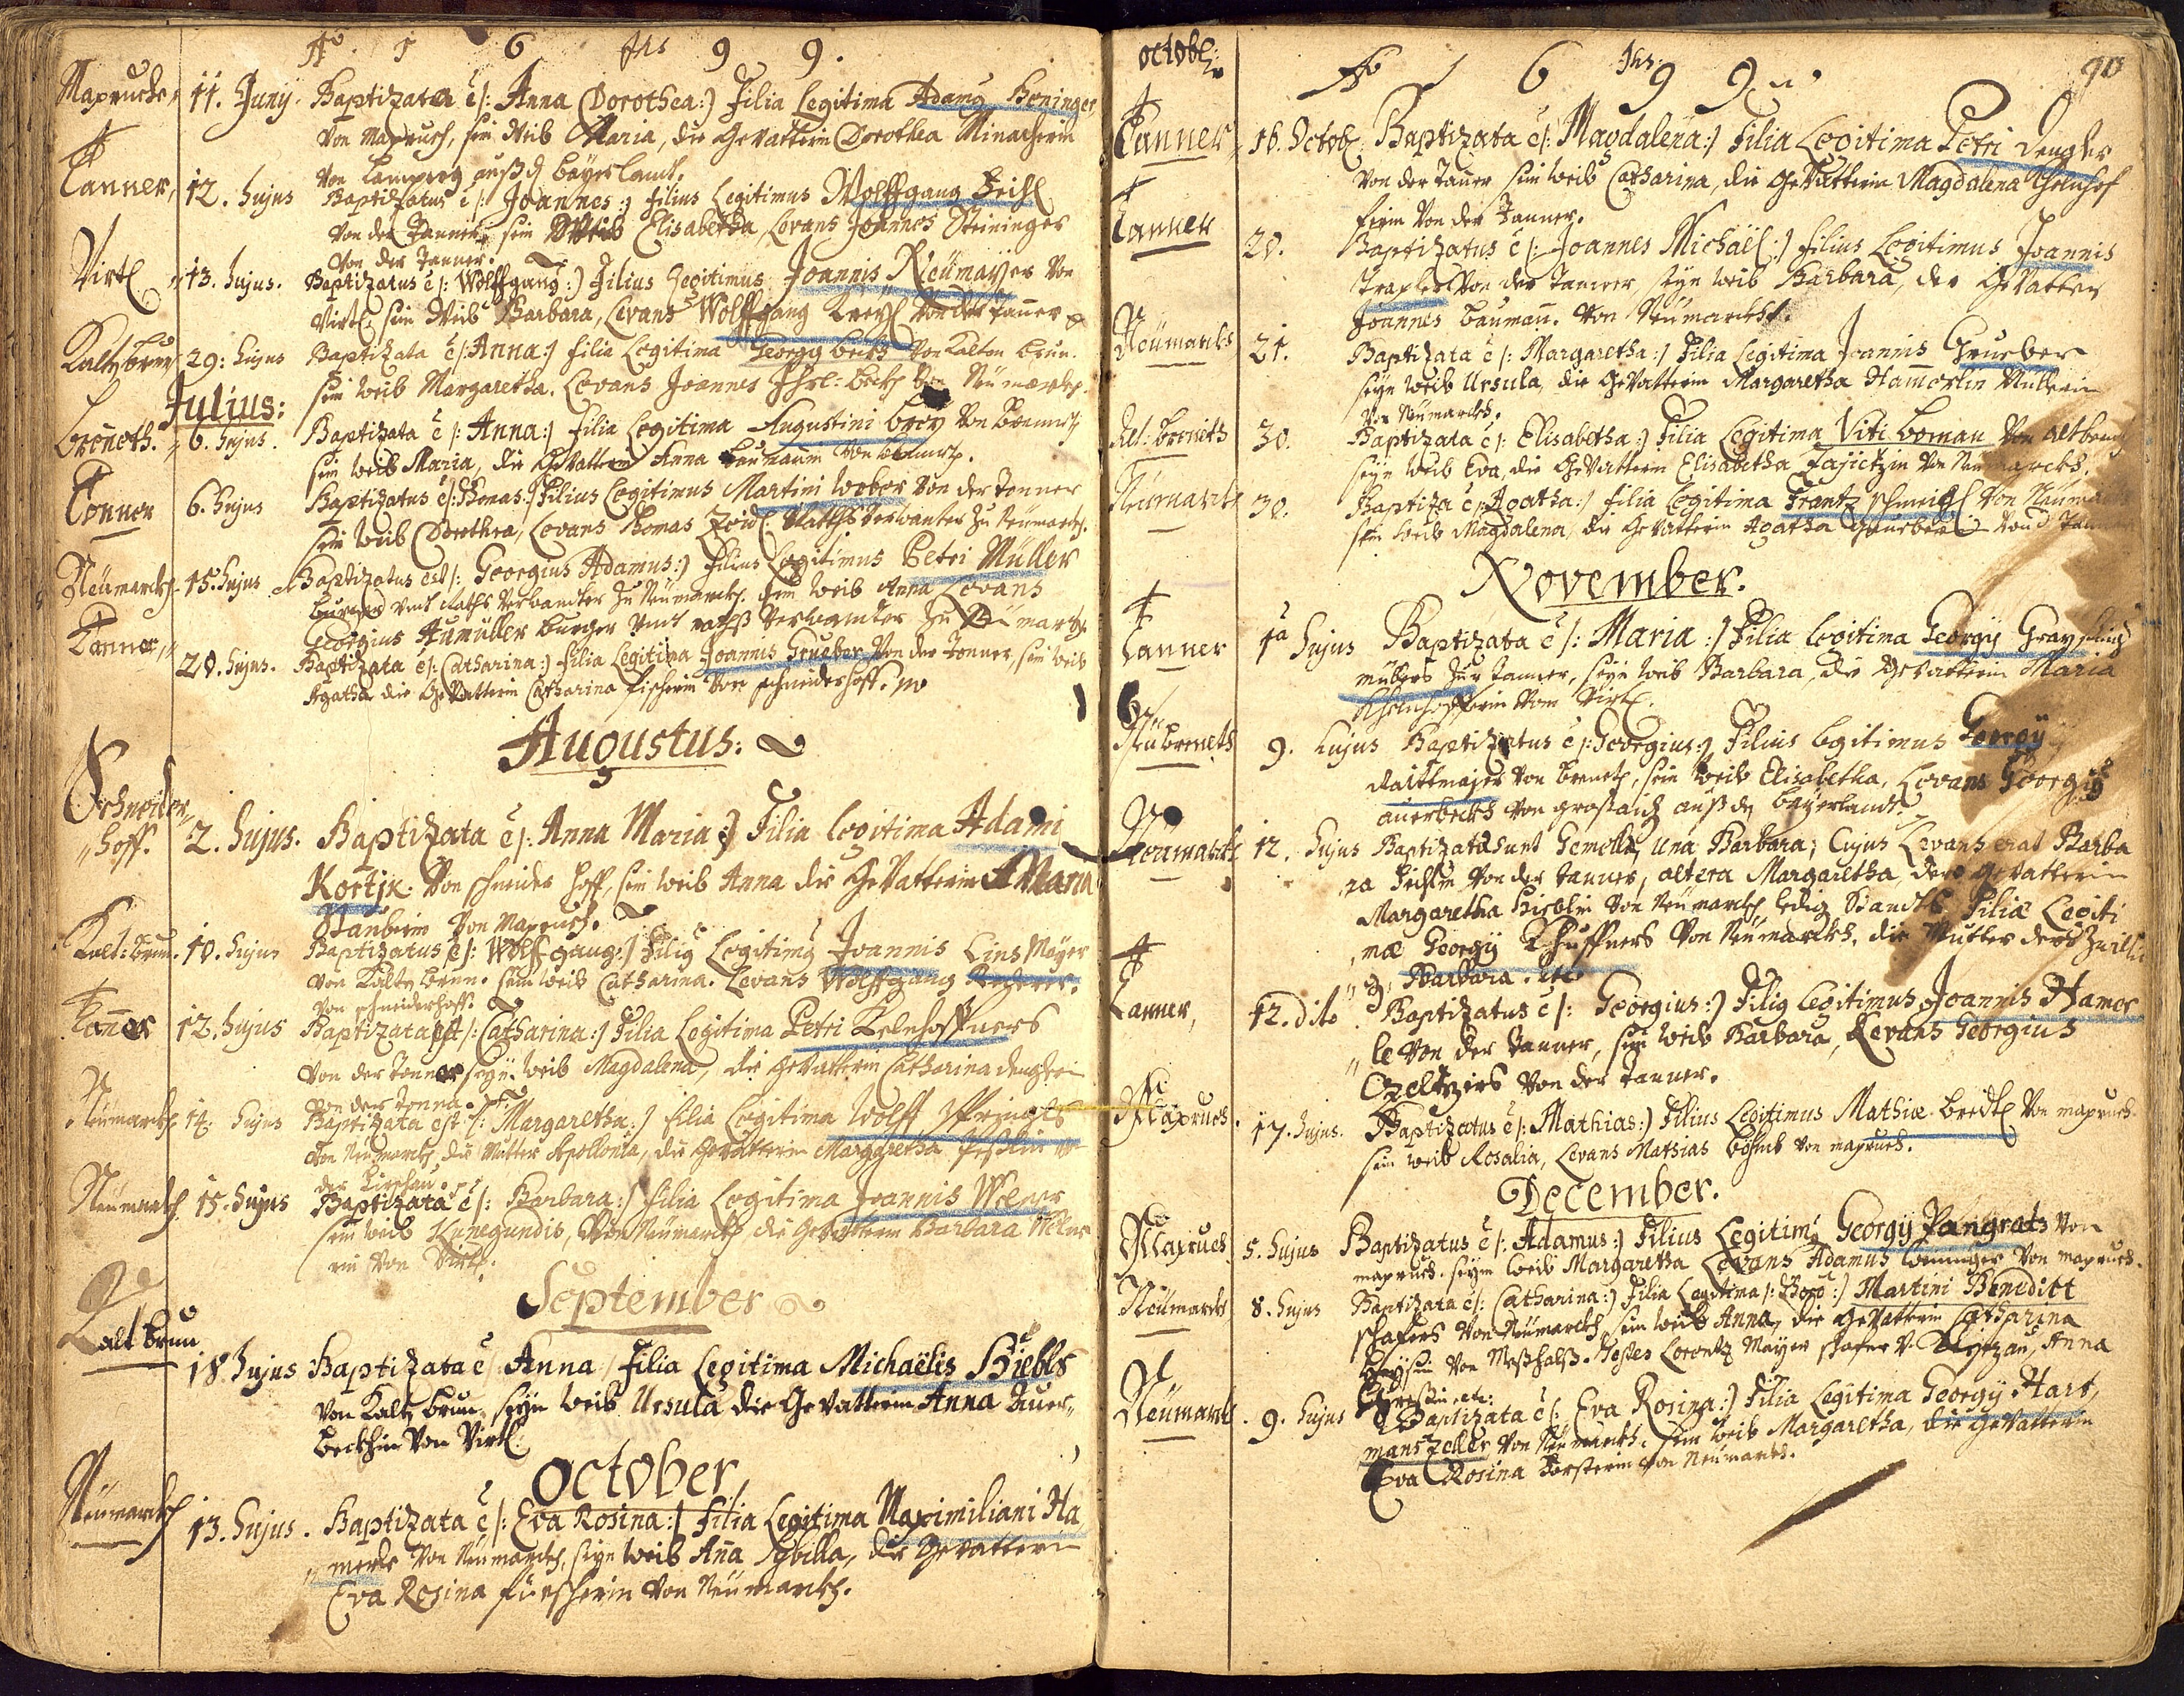 Aõ. 1 6 Ihs 9 9.
Maxruch, 11. Junij. Baptizata e /: Anna Dorothea:) Filia Legitima Adamg Heninger,
von Maxruch, sein Weib Maria, die Gevatterin Dorothea Minacherin
von auß bayerlandt.
Tanner, 12. hujus Baptizatus e /: Joannes:) filius Legitimus Wolffgang Deichl
von der Tanner, sein Weib Elisabetha, Levans Joannes Steininger
von der Tanner.
Virtl 13. hujus. Baptizatus e /: Wolffgang:) Filius Legitimus Joannis Neümayer von
Virtl, sein Weib Barbara, Levans Wolffgang von der Tanner
Kaltbrun 29. hujus Baptizata e /: Anna:) filia Legitima Georgij beckh von Kalten brun.
sein weib Margaretha. Levans Joannes beckh von Neümarckh.
Julius:
Brenneth. 6. hujus. Baptizata e /: Anna:) Filia Legitima Augustini brey von
sein weib Maria, die Gevatterin Anna baumanin von
Tonner 6. hujus Baptizatus e /: Thomas:) Filius Legitimus Martini weber von der Tonner
sein weib Dorothea, Levans Thomas Zeidl Rathsverwanter zu Neümarckh.
Neümarckh. 15. hujus Baptizatus est /: Georgius Adamus:) filius Legitimus Petri Müller
burger undt Raths verwandter zu Neümarckh. sein weib Anna Levans
Georgius Aumüller burger undt raths verwanter zu Neümarckh
Tanner, 28. hujus. Baptizata e /: Catharina:) filia Legitima Joannis Grueber von der Tonner, sein weib
Agatha die Gevatterin Catharina fischerin von schneiderhoff.
Augustus:
Schneider,
hoff. 2. hujus. Baptizata e /: Anna Maria:) Filia legitima Adami
Kortjx. von schneider hoff, sein weib Anna die Gevatterin A Maria
von Maxruch.
Kalt: brun. 10. hujus Baptizatus e /: Wolffgang:) Filig Legitimg Joannis Lins Mayer
von Kalten brun. sein weib Catharina. Levans Wolffgang
von schneiderhoff.
Tanner 12. hujus Baptizata est /: Catharina:) Filia Legitima Petri Kelnhoffners
von der tonner seyn weib Magdalena, die gevatterin Catharina denglerin
von der tonna.
Neümarckh 14. hujus Baptizata est /: Margaretha:) filia Legitima Wolff Springls
von Neümarckh die Mutter Apollonia, die Gevatterin Margaretha
der
Neümarckh 15. hujus Baptizata e /: Barbara:) filia Legitima Joannis Wolner
sein weib Kunegundis, von Neümarckh die Gevatterin Barbara Wolner
rin von Virtl.
September
Kalt brun
18. hujus Baptizata e Anna filia Legitima Michaëlis Hiebls
von Kalt brun, seyn weib Ursula die Gevatterin Anna Auer,
beckhin von Virtl.
October
Neümarckh 13. hujus. Baptizata e /: Eva Rosina:) filia Legitima Maximiliani Ha
merls von Neümarckh, seyn weib Anna Sybilla, die Gevatterin
Eva Rosina von Neümarckh.
Octob:
Aõ 1 6 Ihs. 9 9. 90
Tanner, 16. Octob: Baptizata e /: Magdalena:) Filia Legitima Petri Dengler
von der Tanner sein weib Catharina, die Gevatterin Magdalena Kelnhof
ferin von der Tanner.
Tanner 20. Baptizatus e /: Joannes Michaël:) filius Legitimus Joannis
Traxler von der Tanner seyn weib Barbara, der Gevatter
Joannes bauman. von Neümarckht.
Neümarckh 21. Baptizata e /: Margaretha:) Filia Legitima Joannis Grueber
seyn weib Ursula, die Gevatterin Margaretha Hamerlin Müllerin
von Neümarckh.
Alt: breneth 30. Baptizata e /: Elisabetha:) Filia Legitima Viti boman von altbrenet
seyn weib Eva, die Gevatterin Elisabetha von Neümarckh.
Neümarckh 30. Baptiza e /: Agatha:) filia Legitima Frantz von Neüma
sein weib Magdalena, die Gevatterin Agatha Grueberin von d Tan
November.
Tanner 1a hujus Baptizata e /: Maria:) Filia legitima Georgij
müllers zur Tanner, seyn weib Barbara, die Gevatterin Maria
Khelnhofferin vom Virtl.
Neübreneth 9. hujus Baptizatus e /: Georgius:) Filius legitimus Georgij
Raithmajer von breneth, sein weib Elisabetha, Levans Georgig
auerbeckh von großaich auß de bayerlandt.
Neümarckh 12. hujus Baptizatæ sunt Gemellæ, una Barbara; Cujus Levans erat Barba
ra Deichlin von der tanner, altera Margaretha, dero Gevatterin
Margaretha Hieblin von Neümarckh ledig Standts Filiæ Legiti
mæ Georgij Schuffners von Neümarckh, die Mutter der Zwilli
g, Barbara.
Tanner, 12. dito Baptizatus e /: Georgius:) Filig legitimus Joannis Hamer
le von der Tanner, sein weib Barbara, Levans Georgius
von der Tanner.
Maxruch. 17. hujus. Baptizatus e /: Mathias:) Filius Legitimus Mathiæ bredl von maxruch
sein weib Rosalia, Levans Mathias böhmb von maxruch.
December.
Maxruch 5. hujus Baptizatus e /: Adamus:) Filius Legitimg Georgij Pangratz von
maxruch. seyn weib Margaretha Levans Adamus von maxruch.
Neümarckh 8. hujus Baptizata e /: Catharina:) Filia Legitima Martini Benedict
schafers von Neümarckh sein weib Anna, die Gevatterin Catharina
von Testes Lorentz Mayer schafer v. Anna
etc:
Neümarckh. 9. hujus Baptizata e /: Eva Rosina:) Filia Legitima Georgij Hart,
mans Zeller von Neümarckh, sein weib Margaretha, die Gevatterin
Eva Rosina von Neümarckh.